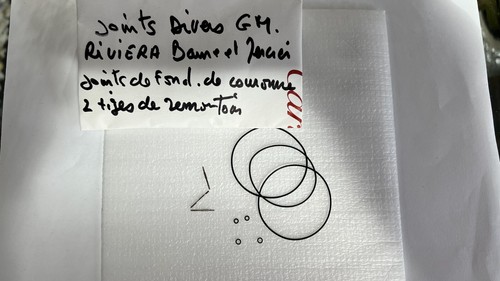 Joints Divers GM.
RIVIERA Baume et Mercier
Joints de Fond. de couronne
2 tiges de remontoir
Car